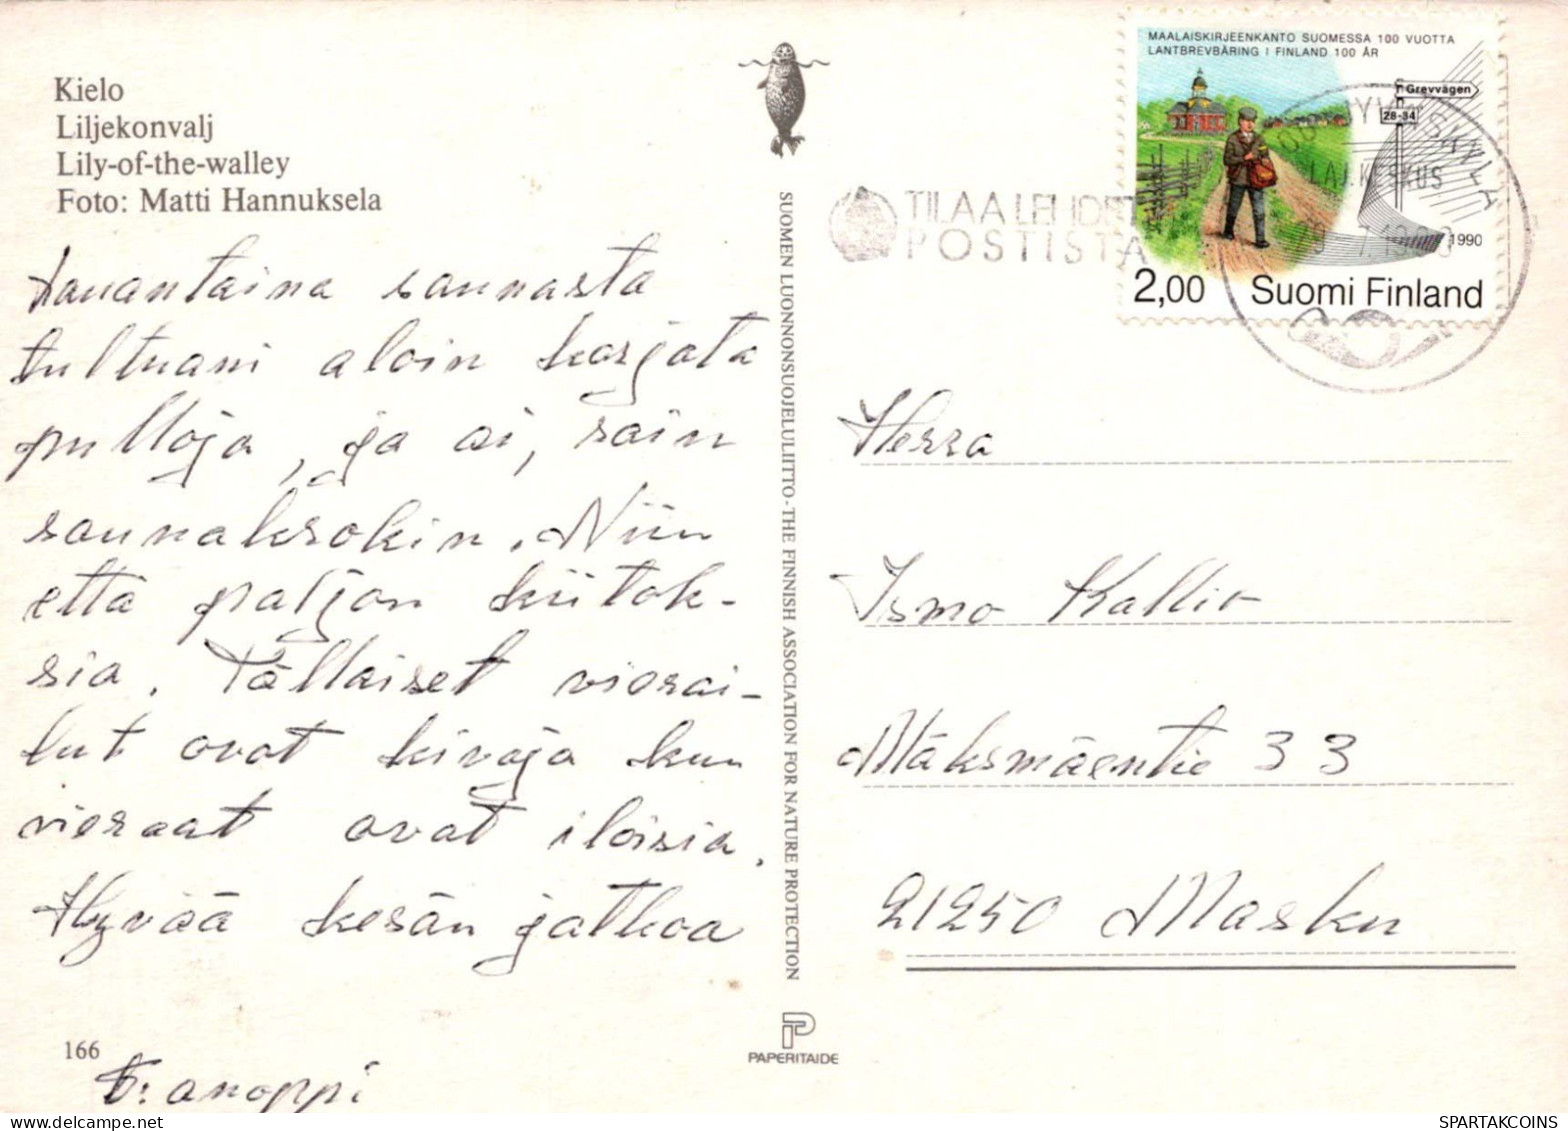 Kielo
Liljekonvalj
Lily-of-the-walley
Foto: Matti Hannuksela
Lauantaina saunasta
tultuani aloin korjata
pulloja, ja ai, sain
saunaksokin. Niin
että paljon kiitok-
sia. Tällaiset vierai-
lut ovat kivoja kun
vieraat ovat iloisia.
Hyvää kesän jatkoa
166
T: anoppi
SUOMEN LUONNONSUOJELULIITTO-THE FINNISH ASSOCIATION FOR NATURE PROTECTION
PAPERITAIDE
TILAA LEHDET
POSTISTA
MAALAISKIRJEENKANTO SUOMESSA 100 VUOTTA
LANTBREVBÄRING I FINLAND 100 ÅR
Grevvägen
28-34
1990
2,00 Suomi Finland
Herra
Ismo Kallio
Mäksmäentie 33
21250 Masku
SPARTAKCOINS